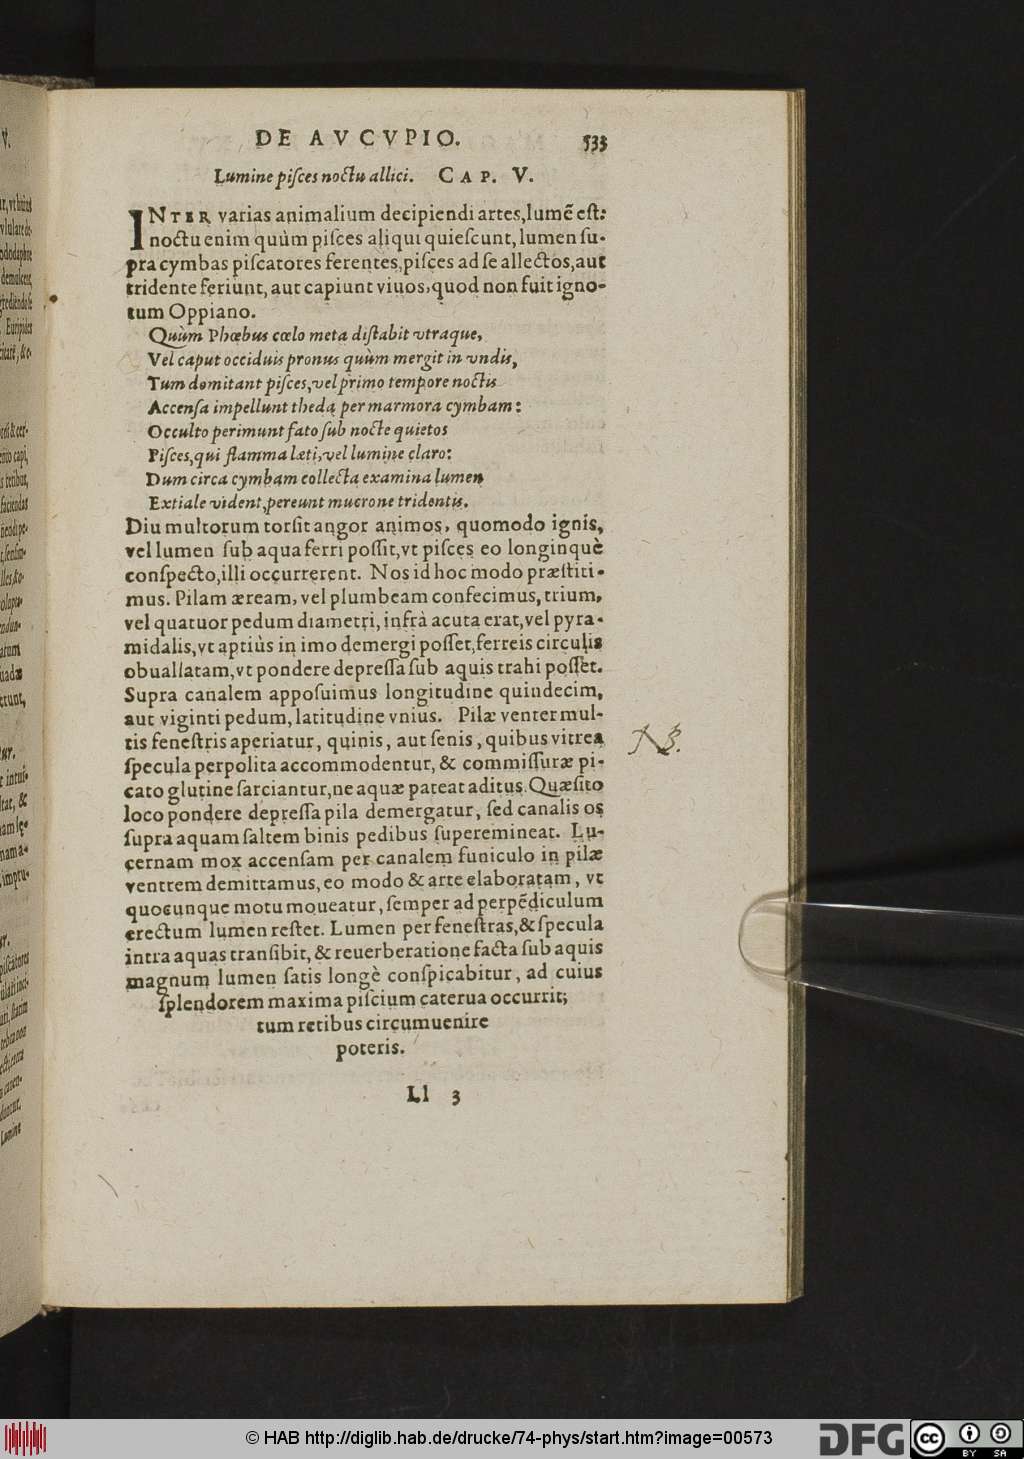 DE AVCVPIO. 533
Lumine piſces noctu allici. CAP. V.
INTER varias animalium decipiendi artes, lumẽ eſt:
noctu enim quùm piſces aliqui quieſcunt, lumen ſu-
pra cymbas piſcatores ferentes, piſces ad ſe allectos, aut
tridente feriunt, aut capiunt viuos, quod non fuit igno-
tum Oppiano.
Quùm Phœbus cœlo meta diſtabit vtraque,
Vel caput occiduis pronus quùm mergit in vndis,
Tum domitant piſces, vel primo tempore noctis
Accenſa impellunt theda per marmora cymbam:
Occulto perimunt fato ſub nocte quietos
Piſces, qui flamma læti, vel lumine claro:
Dum circa cymbam collecta examina lumen
Extiale vident, pereunt mucrone tridentis.
Diu multorum torſit angor animos, quomodo ignis,
vel lumen ſub aqua ferri poſſit, vt piſces eo longinquè
conſpecto, illi occurrerent. Nos id hoc modo præſtiti-
mus. Pilam æream, vel plumbeam confecimus, trium,
vel quatuor pedum diametri, infrà acuta erat, vel pyra-
midalis, vt aptiùs in imo demergi poſſet, ferreis circulis
obuallatam, vt pondere depreſſa ſub aquis trahi poſſet.
Supra canalem appoſuimus longitudine quindecim,
aut viginti pedum, latitudine vnius. Pilæ venter mul-
tis feneſtris aperiatur, quinis, aut ſenis, quibus vitrea
ſpecula perpolita accommodentur, & commiſſuræ pi-
cato glutine ſarciantur, ne aquæ pateat aditus. Quæſito
loco pondere depreſſa pila demergatur, ſed canalis os
ſupra aquam ſaltem binis pedibus ſuperemineat. Lu-
cernam mox accenſam per canalem funiculo in pilæ
ventrem demittamus, eo modo & arte elaboratam, vt
quocunque motu moueatur, ſemper ad perpẽdiculum
erectum lumen reſtet. Lumen per feneſtras, & ſpecula
intra aquas tranſibit, & reuerberatione facta ſub aquis
magnum lumen ſatis longè conſpicabitur, ad cuius
ſplendorem maxima piſcium caterua occurrit;
tum retibus circumuenire
poteris.
Ll 3
NB.
© HAB http://diglib.hab.de/drucke/74-phys/start.htm?image=00573
DFG
cc BY SA